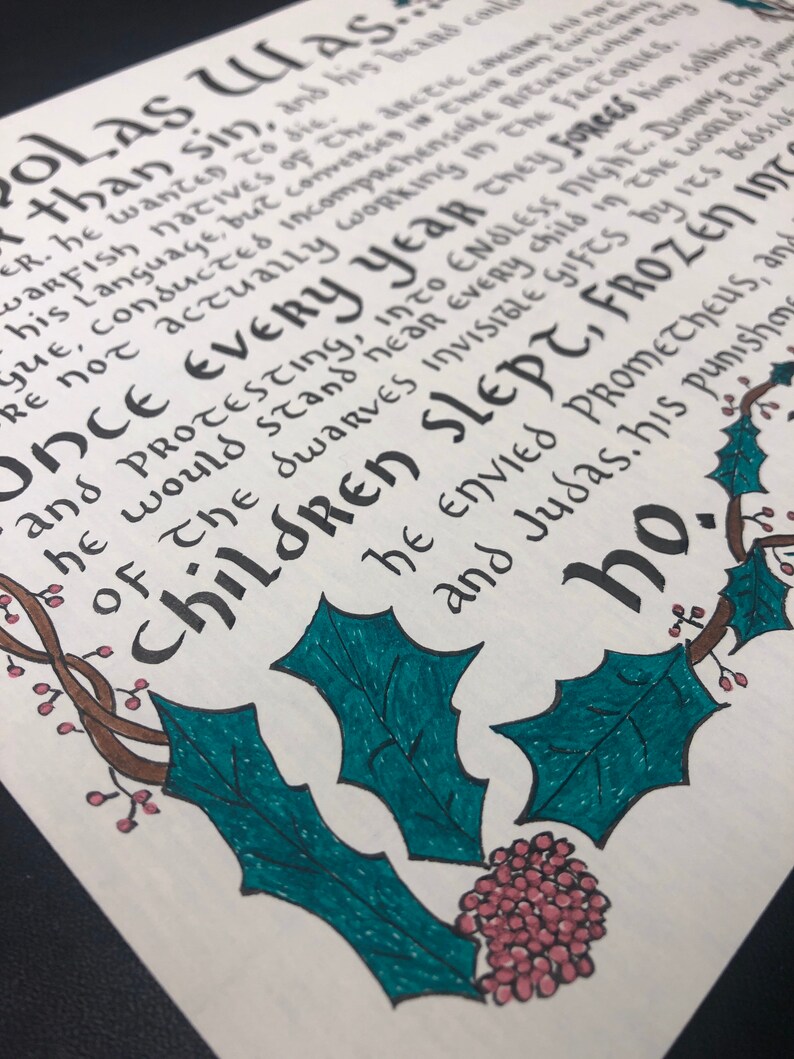 olas Was...
than sin, and his beard could
er. He wanted to die.
dwarfish natives of the Arctic caverns did not
his language, but conversed in their own
gue, conducted incomprehensible rituals, when they
re not actually working in the factories.
Once every year they forced him, sobbing
and protesting, into Endless Night. During the
he would stand near every child in the world, leave
of the dwarves invisible gifts by its bedside
children slept, frozen into
he envied Prometheus, and
and Judas. His punishme
ho.